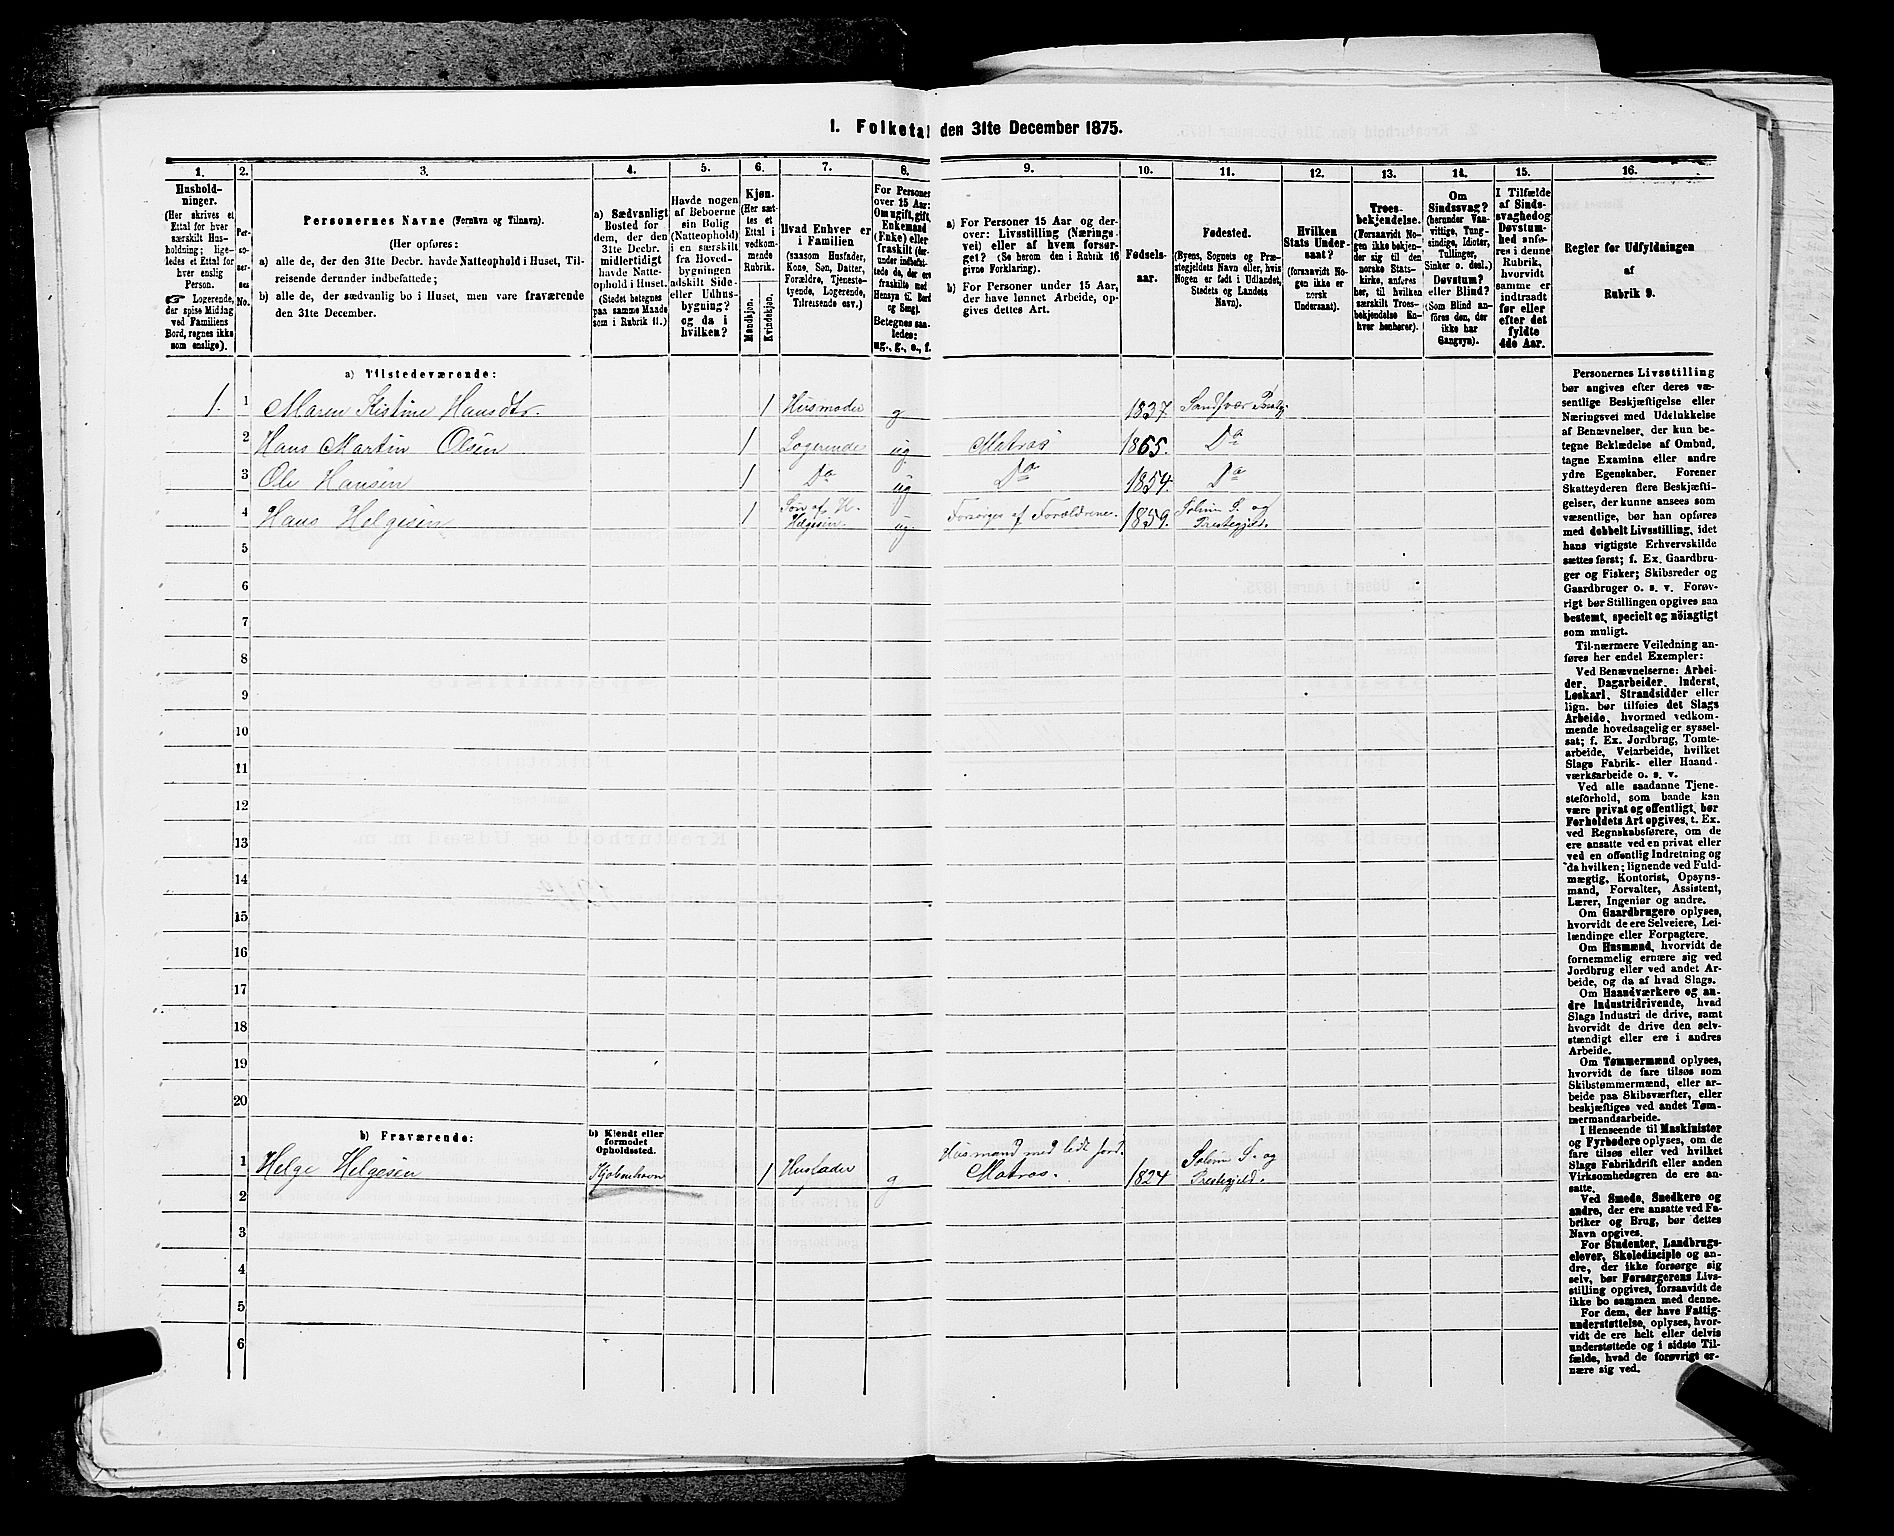 1. Folketal den 31te December 1875.
1.
2.
3.
4.
5.
6.
7.
8.
9.
10.
11.
12.
13.
14.
15.
16.
Hushold-
ninger.
(Her skrives et
Ettal for hver
særskilt Hus-
holdning; lige-
ledes et Ettal for
hver enslig
Person.
☞ Logerende,
der spise Middag
ved Familiens
Bord, regnes ikke
som enslige).
Per-
so-
ner-
nes
No.
Personernes Navne (Fornavn og Tilnavn).
(Her opføres:
a) alle de, der den 31te Decbr. havde Natteophold i Huset, Til-
reisende derunder indbefattede;
b) alle de, der sædvanlig bo i Huset, men vare fraværende
den 31te December.
a) Sædvanligt
Bosted for
dem, der den
31te Decbr.
midlertidigt
havde Natte-
ophold i Huset.
(Stedet betegnes
paa samme Maade
som i Rubrik 11.)
Havde nogen
af Beboerne
sin Bolig
(Natteophold)
i en særskilt
fra Hoved-
bygningen
adskilt Side-
eller Udhus-
bygning?
og da i
hvilken?
Kjøn.
(Her sæt-
tes et
Ettal i
vedkom-
mende
Rubrik.
Mandkjøn.
Kvindekjøn.
Hvad Enhver er
i Familien
(saasom Husfader,
Kone, Søn, Datter,
Forældre, Tjeneste-
tyende, Logerende,
Tilreisende osv.)
For Personer
over 15 Aar:
Om ugift, gift,
Enkemand
(Enke) eller
fraskilt
Betegnes saa-
ledes:
ug., g., e., f.
a) For Personer 15 Aar og der-
over: Livsstilling (Nærings-
vei) eller af hvem forsør-
get? (Se herom den i Rubrik 16
givne Forklaring).
b) For Personer under 15 Aar,
der have lønnet Arbeide, op-
gives dettes Art.
Fødsels-
aar.
Fødested.
(Byens, Sognets og Præ-
stegjeldets Navn eller, hvis
Nogen er født i Udlandet,
Stedets og Landets
Navn).
Hvilken
Stats Under-
saat?
(forsaavidt No-
gen ikke er
norsk
Undersaat).
Troes-
bekjendelse.
(Forsaavidt No-
gen ikke bekjen-
der sig til den
norske Stats-
kirke, anføres
her, til hvilken
særskilt Troes-
bekjendelse En-
hver henhører).
Om
Sindssvag?
(herunder Van-
vittige, Tung-
sindige, Idioter,
Tullinger,
Sinker o. desl.)
Døvstum?
eller Blind?
(Som Blind an-
føres den, der
ikke har
Gangsyn).
I Tilfælde
af Sinds-
svaghed og
Døvstum-
hed anfø-
res i denne
Rubrik,
hvorvidt
samme er
indtraadt
før eller
efter det
fyldte
4de Aar.
Regler for Udfyldningen
af
Rubrik 9.
a) Tilstedeværende:
1. 1 Maren Kistine Hansdtr. 1 Husmoder g 1837. Sandsvær Prestg.
2 Hans Martin Olsen 1 Logerende ug. Matros 1865. Do
3 Ole Hansen 1 Do ug Do 1854. Do
4 Hans Helgesen 1 Søn af H. Helgesen. ug. Forsørges af Forældrene. 1859. Solum S. og Prestegjeld.
5
6
7
8
9
10
11
12
13
14
15
16
17
18
19
20
b) Fraværende:
b) Kjendt eller
formodet
Opholdssted.
1 Helge Helgesen Kjøbenhavn 1 Husfader g Husmand med lidt Jord. Matros. 1824 Solum S. og Prestegjeld.
2
3
4
5
6
Personernes Livsstilling
bør angives efter deres væ-
sentlige Beskjæftigelse eller
Næringsvei med Udelukkelse
af Benævnelser, der kun be-
tegne Beklædelse af Ombud,
tagne Examina eller andre
ydre Egenskaber. Forener
Skatteyderen flere Beskjæfti-
gelser, der kunne ansees som
væsentlige, bør han opføres
med dobbelt Livsstilling, idet
hans vigtigste Erhvervskilde
sættes først; f. Ex. Gaardbru-
ger og Fisker; Skibsreder og
Gaardbruger o. s. v. Forøv-
rigt bør Stillingen opgives saa
bestemt, specielt og nöiagtigt
som muligt.
Til nærmere Veiledning an-
føres her endel Exempler:
Ved Benævnelserne: Arbei-
der, Dagarbeider, Inderst,
Løskarl, Strandsidder eller
lign. bør tilføies det Slags
Arbeide, hvormed vedkom-
mende hovedsagelig er syssel-
sat; f. Ex. Jordbrug, Tomte-
arbeide, Veiarbeide, hvilket
Slags Fabrik- eller Haand-
værksarbeide o. s. v.
Ved alle saadanne Tjene-
steforhold, som baade kan
være privat og offentligt, bør
Forholdets Art opgives, t. Ex.
ved Regnskabsførere, om de
ere ansatte ved en privat eller
ved en offentlig Indretning og
da hvilken; lignende ved Fuld-
mægtig, Kontorist, Opsyns-
mand, Forvalter, Assistent,
Lærer, Ingeniør og andre.
Om Gaardbrugere oplyses,
hvorvidt de ere Selveiere, Lei-
lændinge eller Forpagtere.
Om Husmænd, hvorvidt de
fornemmelig ernære sig ved
Jordbrug eller ved andet Ar-
beide, og da af hvad Slags.
Om Haandværkere og an-
dre Industridrivende, hvad
Slags Industri de drive, samt
hvorvidt de drive den selv-
stændigt eller ere i andres
Arbeide.
Om Tømmermænd oplyses,
hvorvidt de fare tilsøs som
Skibstømmermænd, eller ar-
beide paa Skibsværfter, eller
beskjæftiges ved andet Tøm-
mermandsarbeide.
I Henseende til Maskinister
og Fyrbødere oplyses, om de
fare tilsøs eller ved hvilket
Slags Fabrikdrift eller anden
Virksomhedsgren de ere an-
satte.
Ved Smede, Snedkere og
andre, der ere ansatte ved Fa-
briker og Brug, bør dettes
Navn opgives.
For Studenter, Landbrugs-
elever, Skoledisciple og an-
dre, der ikke forsørge sig
selv, bør Forsørgerens Livs-
stilling opgives, forsaavidt de
ikke bo sammen med denne.
For dem, der have Fattig-
understøttelse, oplyses, hvor-
vidt de ere helt eller delvis
understøttede og i sidste Til-
fælde, hvad de forøvrigt er-
nære sig ved.